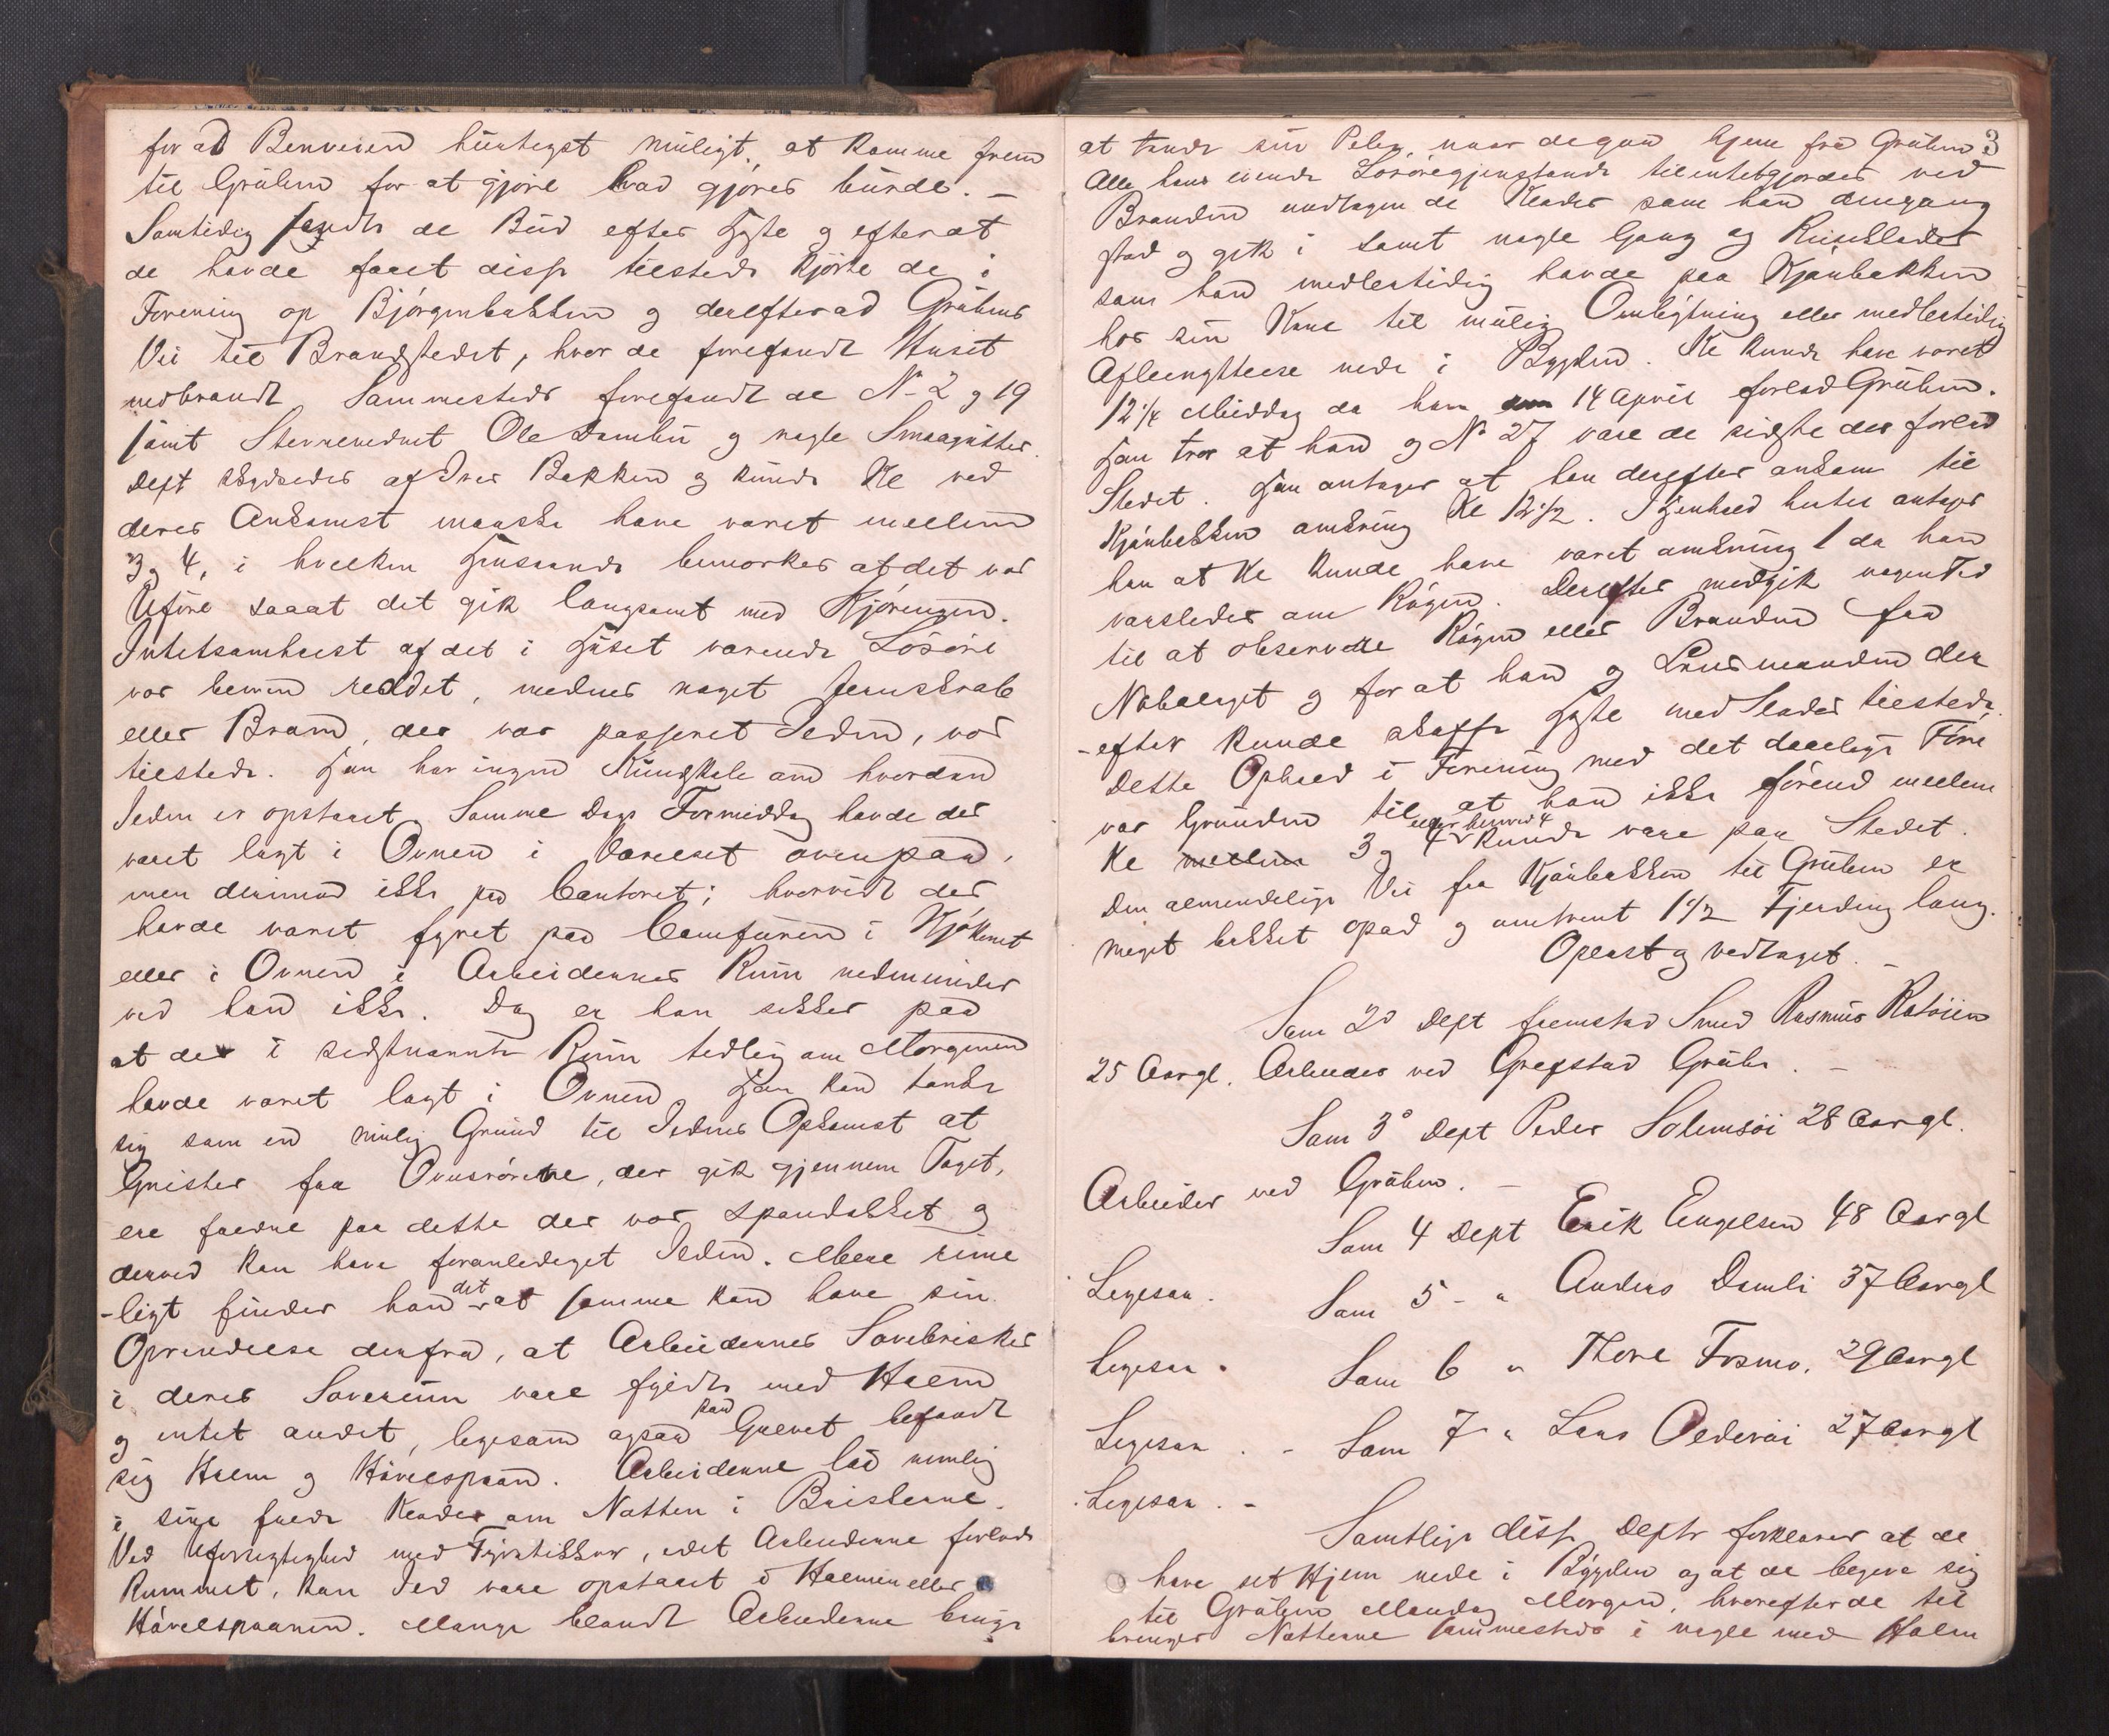 for ad Benveien hurtigst muligt, at komme frem
til Gruben for at gjøre hvad gjøres burde. —
Samtidig sendte de Bud efter Heste og efterat
de havde faaet disse tilstede kjørte de i
Forening op Bjørgenbakken og derefter ad Grubens
Vei til Brandstedet, hvor de forefandt Huset
nedbrandt Sammesteds forefandt de No 2 og 19
samt Stevnevidnet Ole Damli og nogle Smaagutter.
Dept skydsedes af Iver Bakken og kunde Kl ved
deres Ankomst maaske have varet mellem
3 og 4, i hvilken Henseende bemærkes at det var
Uføre saaat det gik langsomt med Kjøringen.
Intetsomhelst af det i Huset værende Løsøre
var bleven reddet, medens noget Jernskrab
eller Bram, der var passeret Ilden, var
tilstede. Han har ingen Kundskab om hvordan
Ilden er opstaaet. Samme Dags Formiddag havde der
været lagt i Ovnen i Værelset ovenpaa,
men derimod ikke paa Contoret; hvorvidt der
havde været fyret paa Comfuren i Kjøkkenet
eller i Ovnen i Arbeidernes Rum nedenunder
ved han ikke. Dog er han sikker paa
at der i sidstnævnte Rum tidlig om Morgenen
havde været lagt i Ovnen Han kan tænke
sig som en mulig Grund til Ildens Opkomst at
Gnister fra Ovnsrørene, der gik gjennem Taget,
ere faldne paa dette der var spontækket og
derved kan have foranlediget Ilden. Mere rime
-ligt finder han det at samme kan have sin
Oprindelse derfra, at Arbeidernes Sovebrisker
i deres Soverum vare fyldte med Halm
og intet andet, ligesom ogsaa paa Gulvet befandt
sig Halm og Høvelspaan. Arbeiderne laa nemlig
i sine fulde Klæder om Natten i Briskerne.
Ved Uforsigtighed med Fyrstikker, idet Arbeiderne forlode
Rummet, kan Ild være opstaaet i Halmen eller
Høvelspaanen. Mange blandt Arbeiderne bruge
3
at tænde sin Pibe, naar de gaa hjem fra Gruben
Alle hans eiende Løsøregjenstande tilintetgjordes ved
Branden undtagen de Klæder som han dengang
stod og gik i samt nogle Gang og Rinklæder
som han midlertidig havde paa Kjønbakken
hos sin Kone til mulig Ombytning eller midlertidig
Afbenyttelse nede i Bygden. Kl kunde have været
12 1/4 Middag da han 14 April forlod Gruben.
Han tror at han og No 27 vare de sidste der forlod
Stedet. Han antager at han derefter ankom til
Kjønbakken omkring Kl 12 1/2. I Henhold hertil antager
han at Kl kunde have været omkring 1 da han
varsledes om Røgen. Derefter medgik nogen Tid
til at observere Røgen eller Branden fra
Nabolaget og for at han og Lensmanden der
-efter kunde skaffe Heste med Slæder tilstede.
Dette Ophold i Forening med det daarlige Føre
var Grunden til at han ikke førend mellem
Kl mellem 3 og 4 eller henved 4 kunde være paa Stedet.
Den almindelige Vei fra Kjønbakken til Gruben er
meget bakket opad og omtrent 1 1/2 Fjerding lang.
Oplæst og vedtaget. —
Som 2o Dept fremstod Smed Rasmus Ratøien
25 Aargl. Arbeider ved Grefstad Grube. —
Som 3o Dept Peder Solemsøi 28 Aargl.
Arbeider ved Gruben. —
Som 4 Dept Erik Engelsen 48 Aargl
Ligesaa.
Som 5 - " Anders Damli 37 Aargl
Ligesaa.
Som 6 " Thore Fosmo, 29 Aargl
Ligesaa. -
Som 7 " Lars Oldervøi 27 Aargl
Ligesaa. -
Samtlige disse Depte forklarer at de
have sit Hjem nede i Bygden og at de begive sig
til Gruben Mandag Morgen, hvorefter de til
bringer Nætterne sammesteds i nogle med Halm